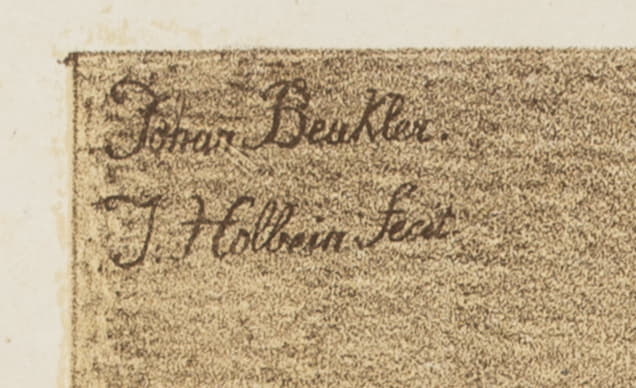 Johan Beukler.
J. Holbein fecit